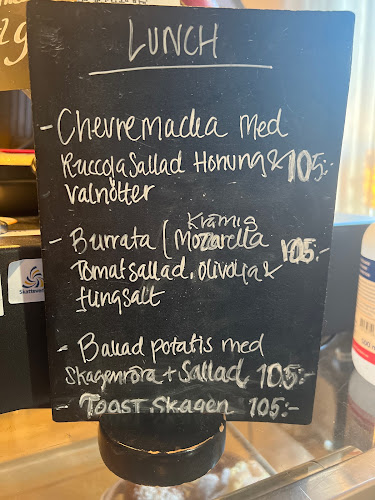 LUNCH
- Chevremacka med
Ruccola Sallad Honung & 105:-
valnötter
Krämig
- Burrata ( Mozarella 105:-
Tomatsallad, olivolja &
flingsalt
- Bakad potatis med
Skagenröra + Sallad 105:-
- Toast Skagen 105:-